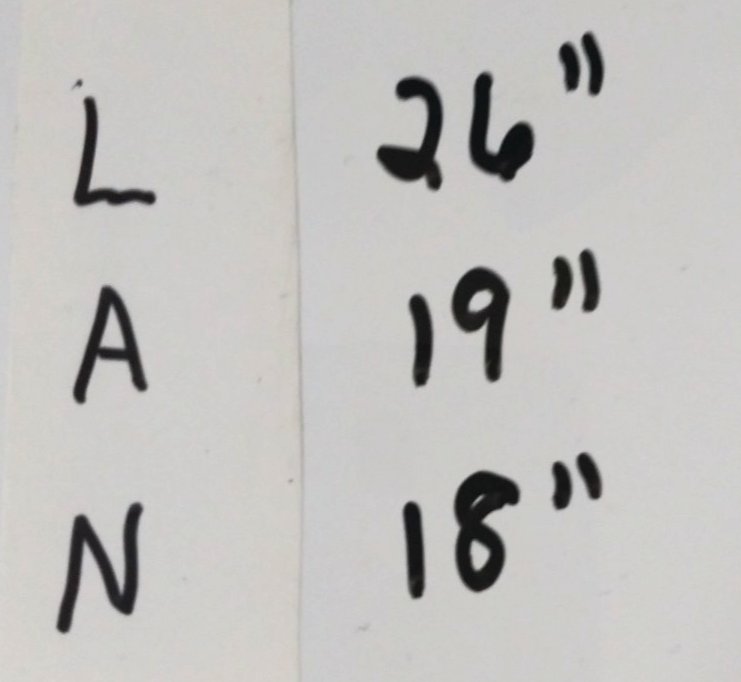 L 26"
A 19"
N 18"